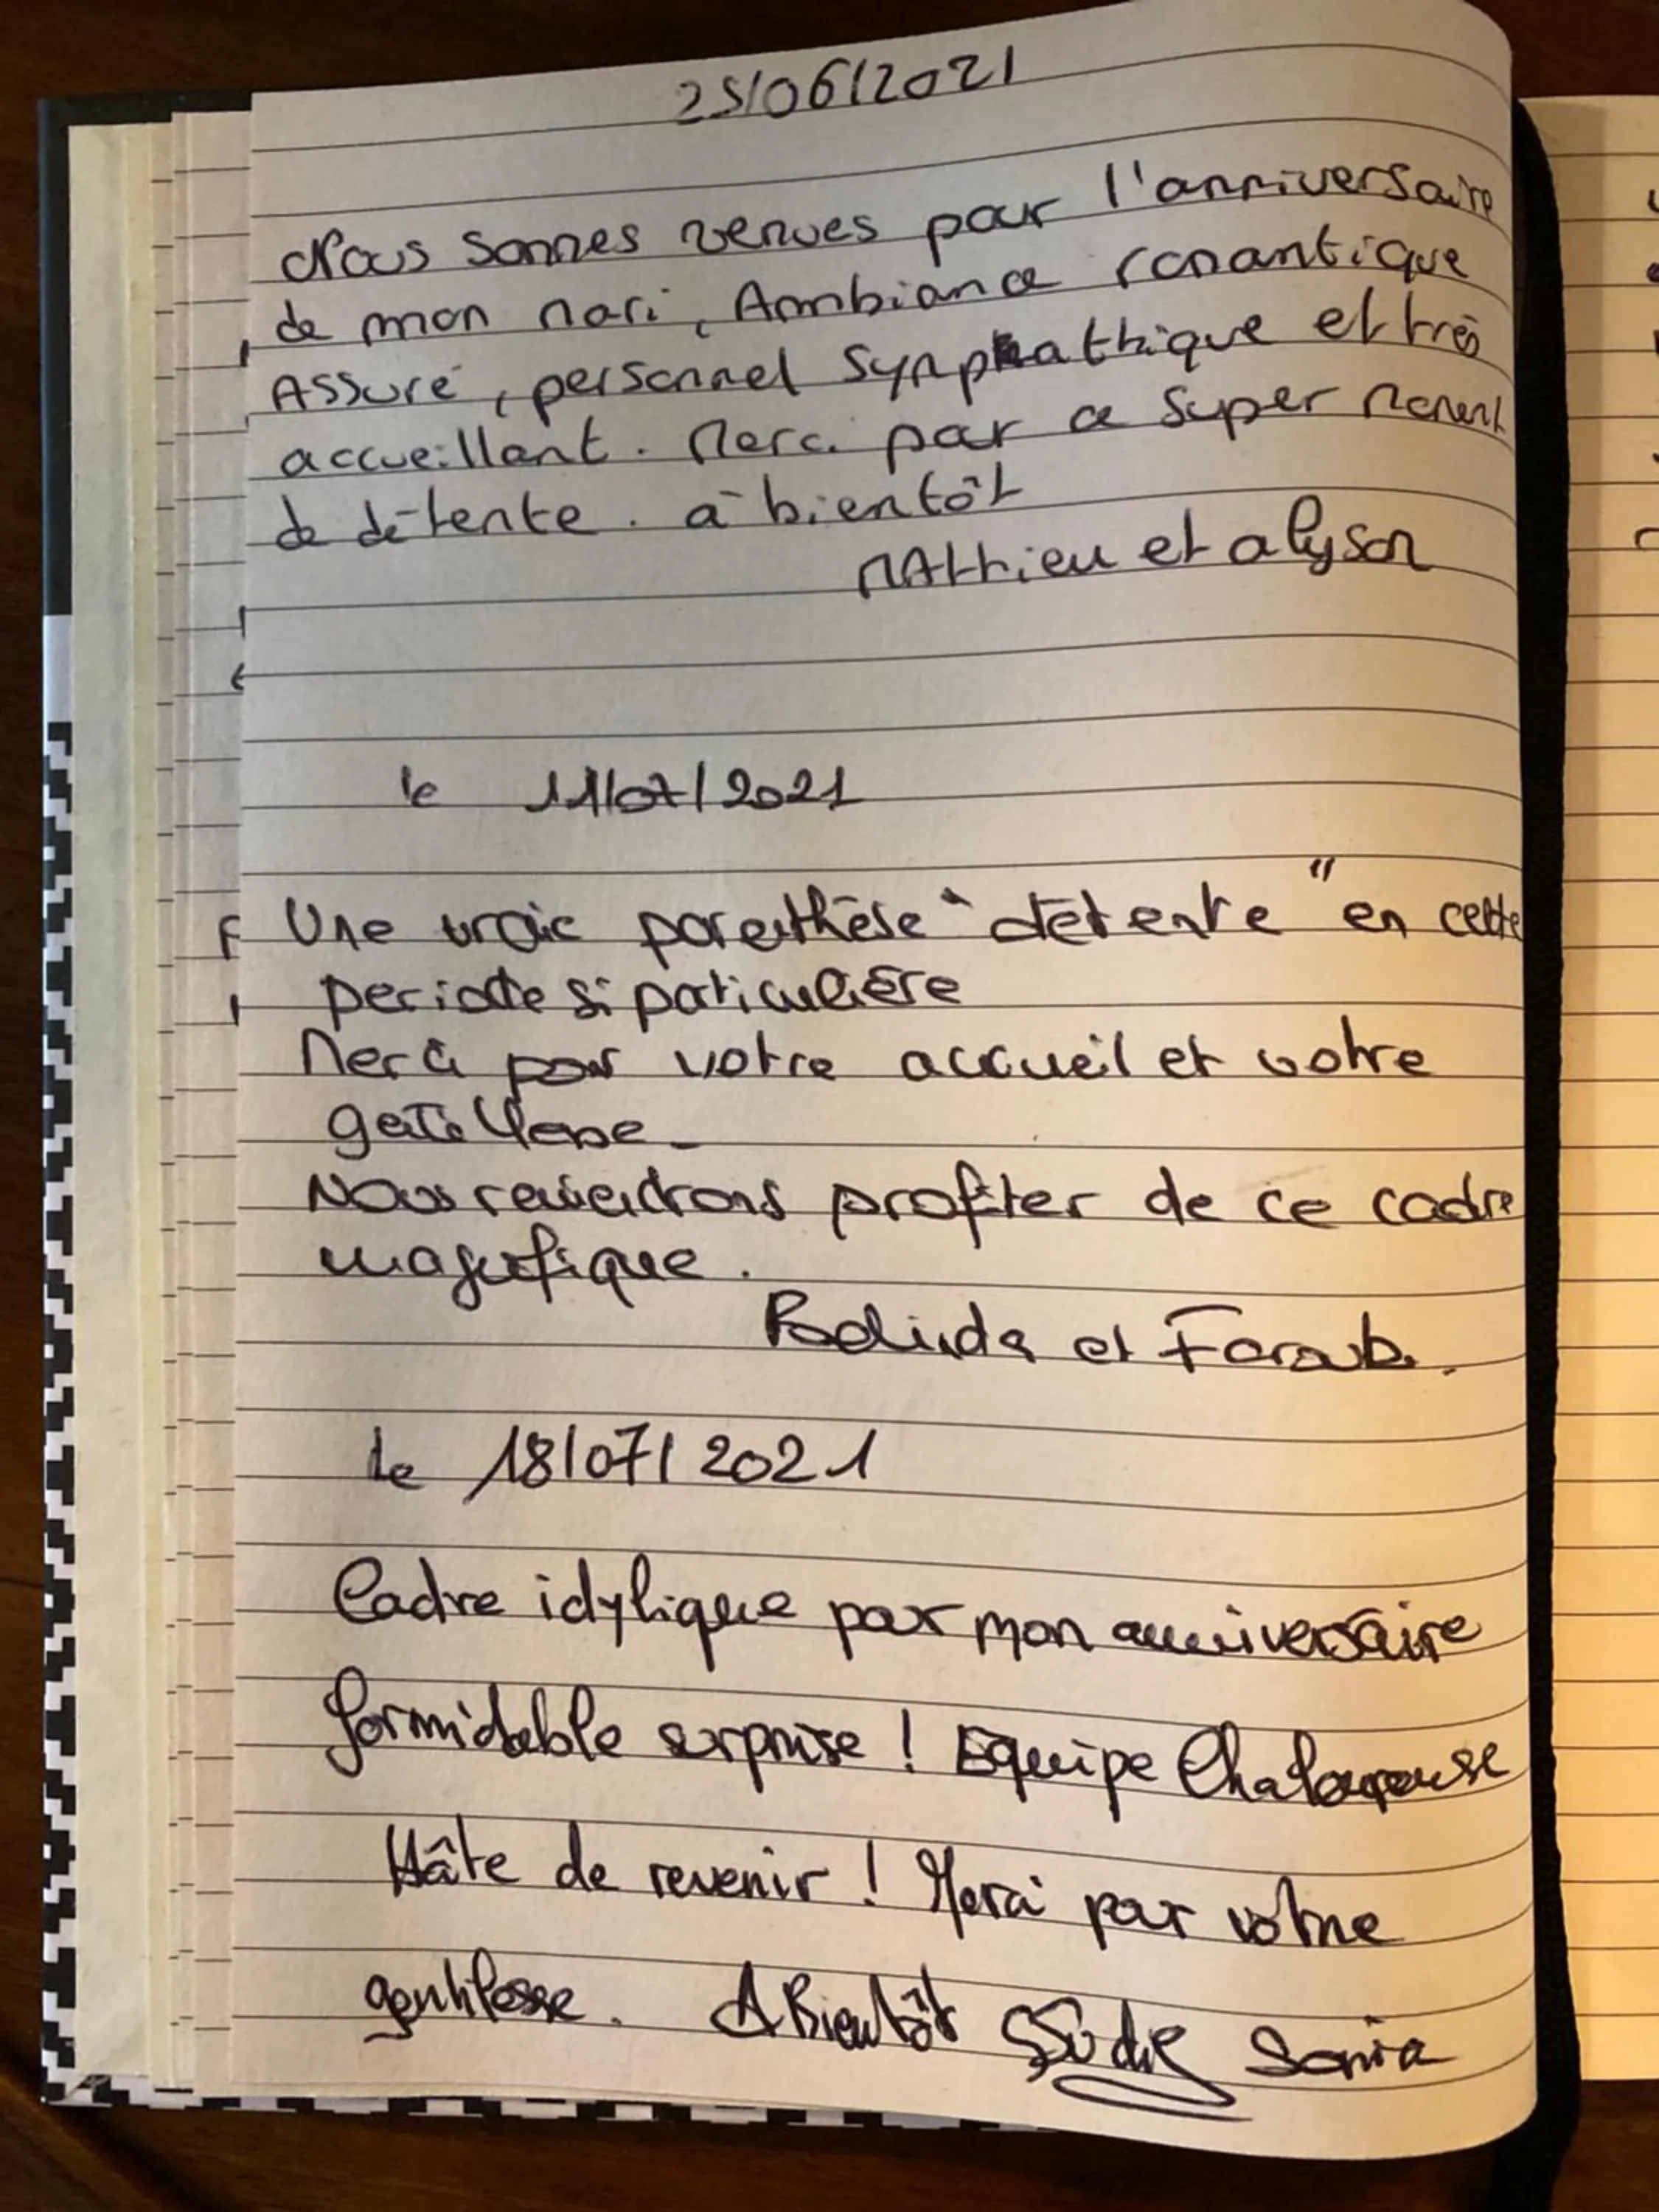 25/06/2021
Nous sommes venues pour l'anniversaire
de mon mari, Ambiance romantique
Assuré, personnel symphathique et très
accueillant. Merci pour ce super moment
de détente. à bientôt
MAthieu et alyson
le 11/07/2021
Une vraie parenthèse "détente" en cette
periode si particulière
Merci pour votre accueil et votre
gentillesse
Nous reviendrons profiter de ce cadre
magnifique.
et
le 18/07/2021
Cadre idylique pour mon anniversaire
formidable surprise ! Equipe Chaleureuse
Hâte de revenir ! Merci pour votre
gentilesse. A Bientôt Sonia